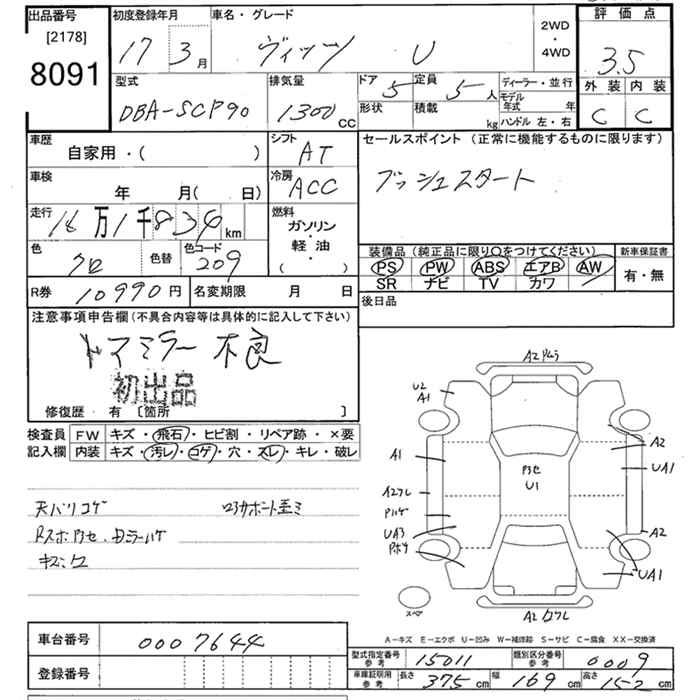 出品番号 初度登録年月 車名・グレード 2WD・4WD 評価点
[2178]
8091
17 3月 ヴィッツ U 3.5
型式 排気量 ドア 5 定員 5人 ディーラー・並行 外装 内装
DBA-SCP90 1300cc 形状 積載 kg モデル年式 年 C C
ハンドル 左・右
車歴 シフト セールスポイント (正常に機能するものに限ります)
自家用・( ) AT
車検 冷房 プッシュスタート
年 月( 日) ACC
走行 燃料
万 千 839 km ガソリン・軽油・( )
色 色替 色コード 装備品 (純正品に限り○をつけてください) 新車保証書
クロ 209 PS PW ABS エアB AW 有・無
SR ナビ TV カワ
R券 10990円 名変期限 月 日 後日品
注意事項申告欄 (不具合内容等は具体的に記入して下さい)
ドアミラー不良
初出品
修復歴 有 [箇所 ]
検査員記入欄 FW キズ・飛石・ヒビ割・リペア跡・×要
内装 キズ・汚レ・コゲ・穴・スレ・キレ・破レ
天バリコゲ
U2
A1
A1
A2
UA1
U1
UA3
A2
UA1
スペア
A-キズ E-エクボ U-凹み W-補修跡 S-サビ C-腐食 XX-交換済
車台番号 0007644
登録番号
型式指定番号 参考 15011 類別区分番号 参考 0009
車庫証明用 参考 長さ 375cm 幅 169cm 高さ 152cm